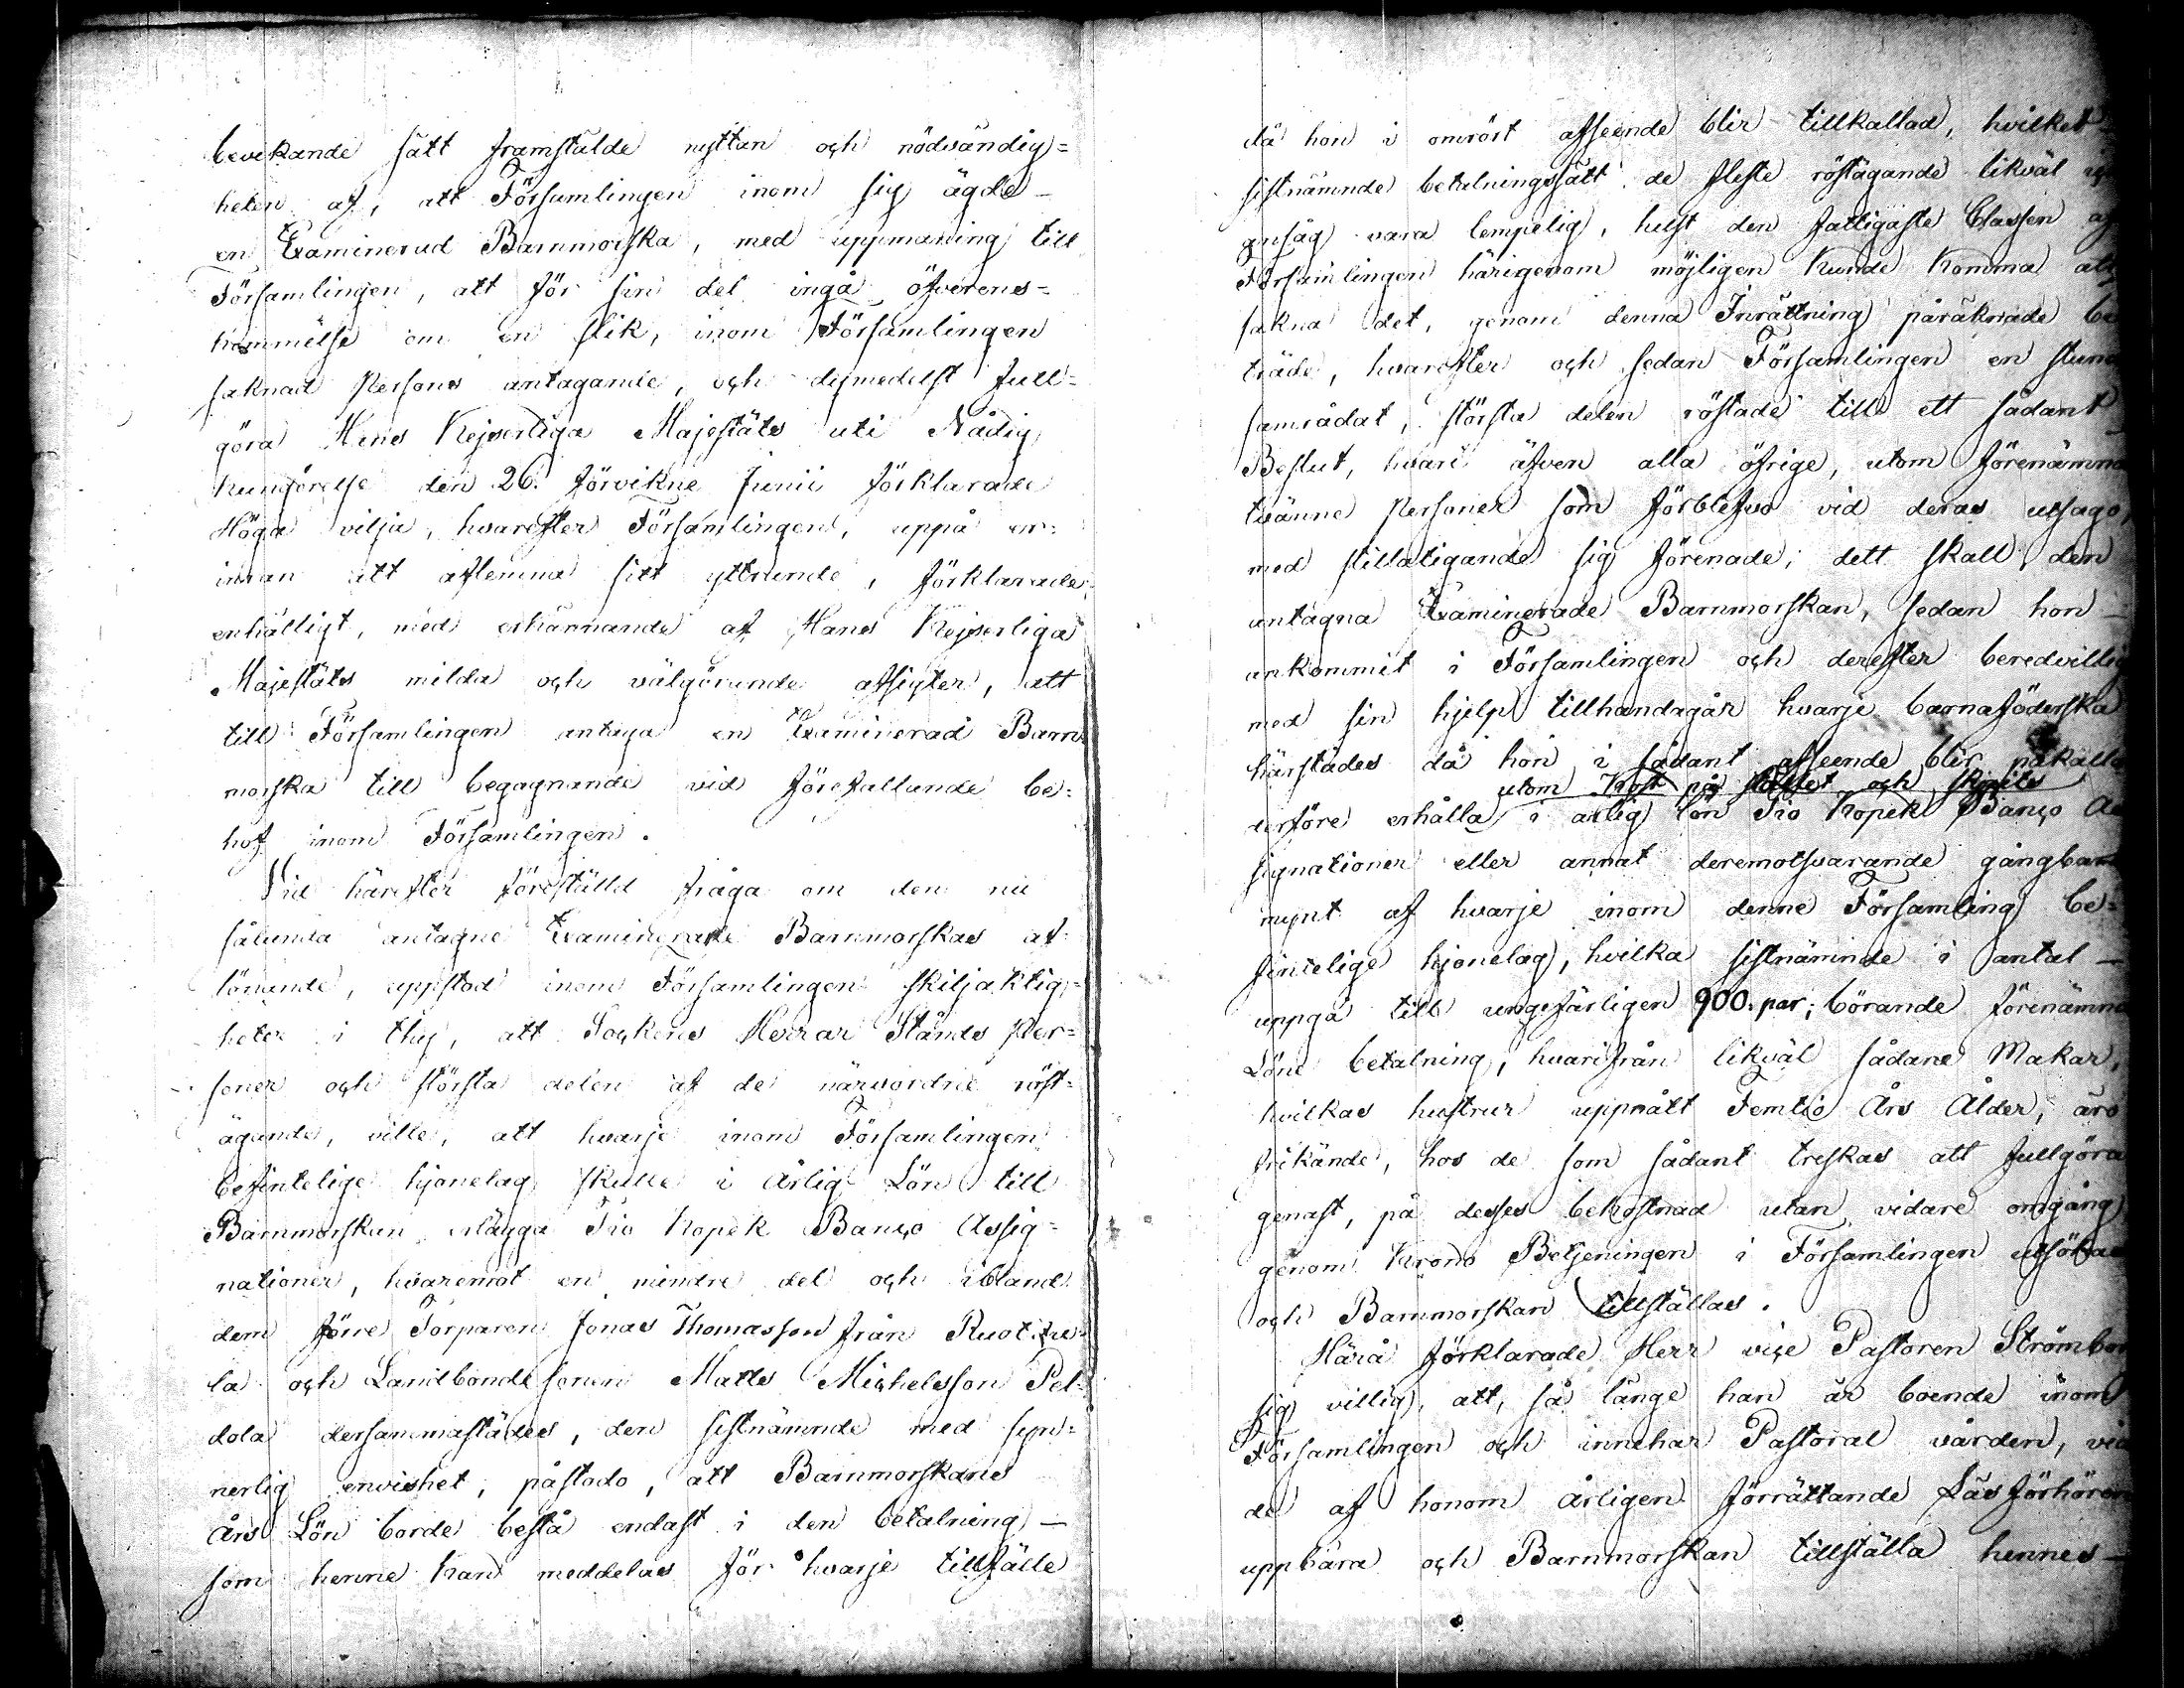 bevekande sätt framstälde nyttan och nödvändig=
heten af, att Församlingen inom sig ägde
en Examinerad Barnmorska, med uppmaning till
Församlingen, att för sin del ingå öfverens=
kommelse om en slik, inom Församlingen
saknad Persons antagande, och dymedelst full=
göra Hans Kejserliga Majestäts uti Nådig
kungörelse den 26. förvikne Junii förklarade
Höga vilja, hvarefter Församlingen, uppå er=
inran att aflemna sitt yttrande, förklarade
enhälligt, med erkännande af Hans Kejserliga
Majestäts milda och välgörande afsigter, att
till Församlingen antaga en Examinerad Barn
morska till begagnande vid förefallande be=
hof inom Församlingen.
Vid härefter föreställd fråga om den nu
sålunda antagne Examinerade Barnmorskas af=
lönande, uppstod inom Församlingen skiljaktig=
heter i thy, att Sockens Herrar Stånds Per=
soner och största delen af de närvordne röst=
ägande, ville, att hvarje inom Församlingen
befintelige hjonelag skulle i Årlig Lön till
Barnmorskan erlägga Tio Kopek Banco Assig=
nationer, hvaremot en mindre del och ibland
dem förre Torparen Jonas Thomasson från Ruot
la och Landbonde sonen Matts Michelsson Pel=
dola dersammastädes, den sistnämnde med syn=
nerlig envishet, påstodo, att Barnmorskans
Års Lön borde bestå endast i den betalning
som henne kan meddelas för hvarje tillfälle
då hon i omrört afseende blir tillkallad, hvilket
sistnämnde betalningssätt de fleste röstägande likväl
ansåg vara lempelig, helst den fattigaste Classen af
Församlingen härigenom möjligen kunde komma att
sakna det, genom denna Inrättning påräknade be
träde, hvarefter och sedan Församlingen en stund
samrådat, största delen röstade till ett sådant
Beslut, hvari äfven alla öfrige, utom förenämnde
tvänne Personer som förblefvo vid deras utsago,
med stillatigande sig förenade; dett skall den
antagna Examinerade Barnmorskan, sedan hon
ankommit i Församlingen och derefter beredvillig
med sin hjelp tillhandagår hvarje barnaföderska
härstädes då hon i sådant afseende blir påkallad
utom Kost på stället och skjuts
derföre erhålla i årlig lön Tio Kopek Banco As
signationer eller annat deremotsvarande gångbart
mynt af hvarje inom denne Församling be=
fintelige hjonelag, hvilka sistnämnde i antal
uppgå till ungefärligen 900. par; börande förenämnde
Löne betalning, hvarifrån likväl sådane Makar,
hvilkas hustrur uppnått Femtio Års Ålder, äro
frikände, hos de som sådant treskas att fullgöra
genast, på desses bekostnad utan vidare omgång
genom Krono Betjeningen i Församlingen utsökas
och Barnmorskan tillställas.
Härå förklarade Herr vice Pastoren Strömbor
sig villig, att, så länge han är boende inom
Församlingen och innehar Pastoral vården, vid
de af honom årligen förrättande Läsförhören
uppbära och Barnmorskan tillställa hennes